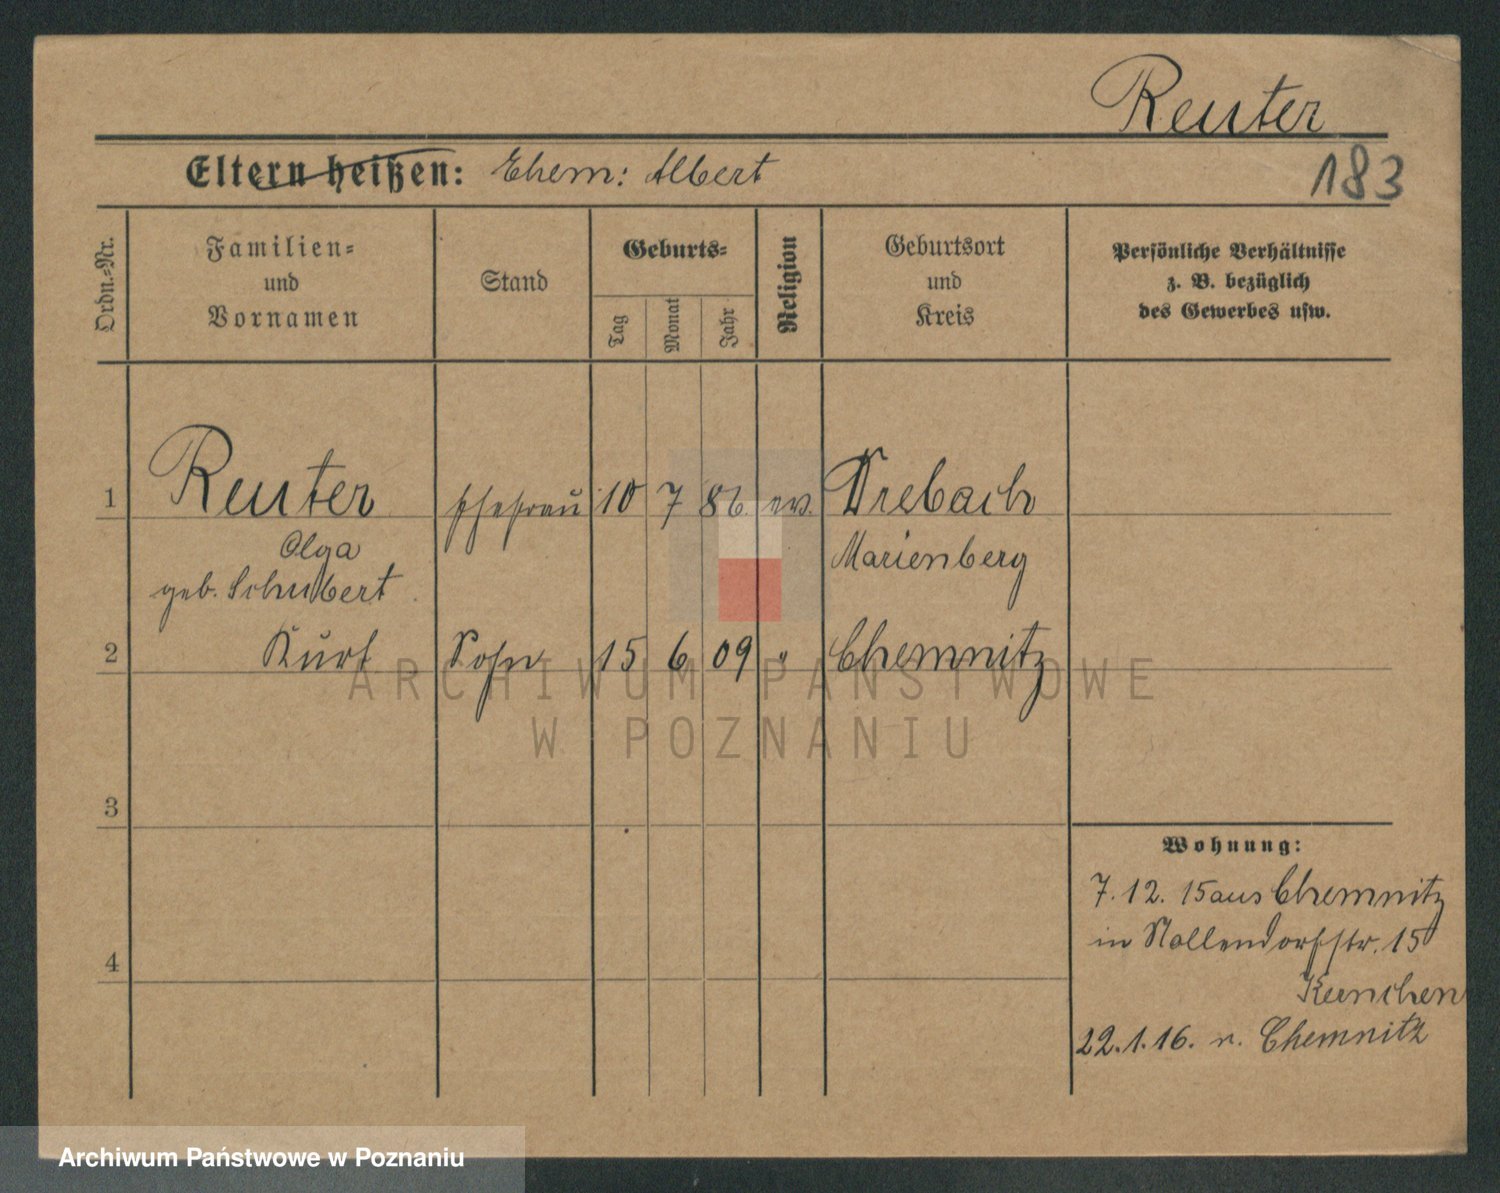 Reuter
183
Eltern heißen: Ehem: Albert
Ordn.-Nr.
Familien-
und
Vornamen
Stand
Geburts-
Tag
Monat
Jahr
Religion
Geburtsort
und
Kreis
Persönliche Verhältnisse
z. B. bezüglich
des Gewerbes usw.
1 Reuter Ehefrau 10 7 86. ev. Drebach
Olga Marienberg
geb. Schubert
2 Kurt Sohn 15 6 09 " Chemnitz
ARCHIWUM PAŃSTWOWE
W POZNANIU
3
Wohnung:
7. 12. 15 aus Chemnitz
in Nollendorfstr. 15
4
22.1.16. n. Chemnitz
Archiwum Państwowe w Poznaniu